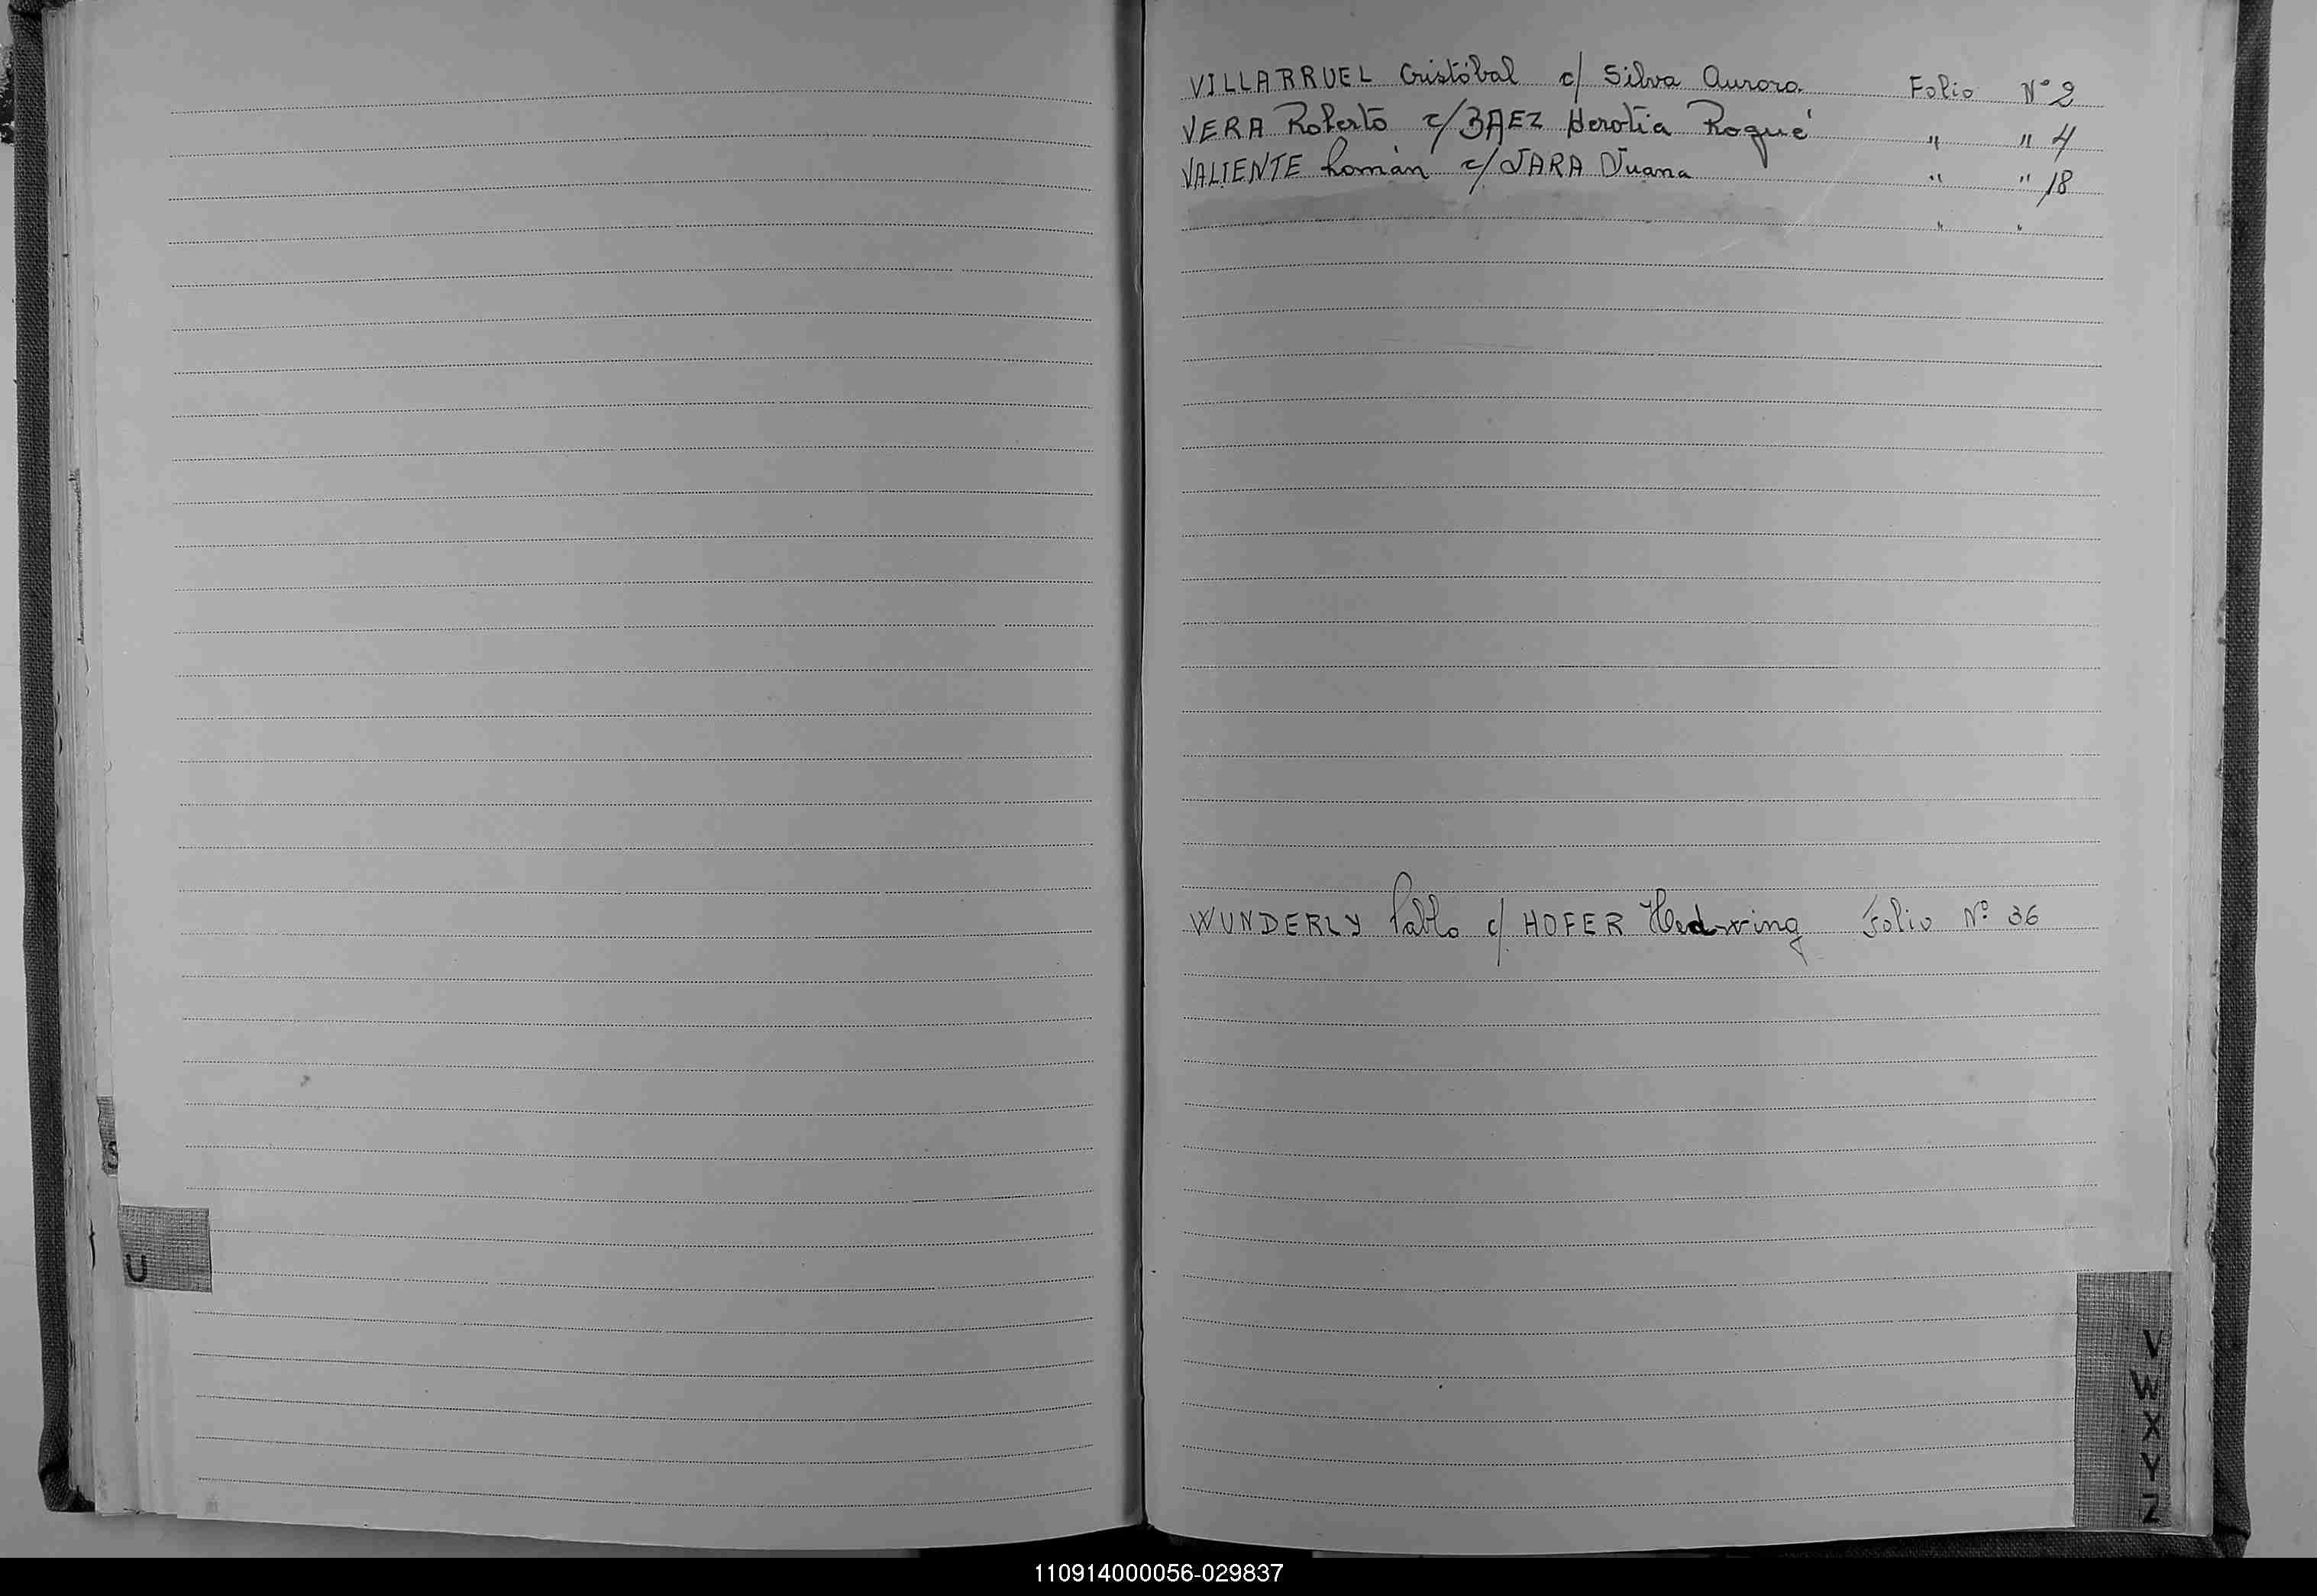 VILLARRUEL Cristóbal c/ Silva Aurora. Folio Nº 2
VERA Roberto c/ BAEZ Herotia Roqué " " 4
VALIENTE Román c/ JARA Juana " " 18
" "
WUNDERLY Pablo c/ HOFER Hedwing Folio Nº 36
S
U
V
W
X
Y
Z
110914000056-029837